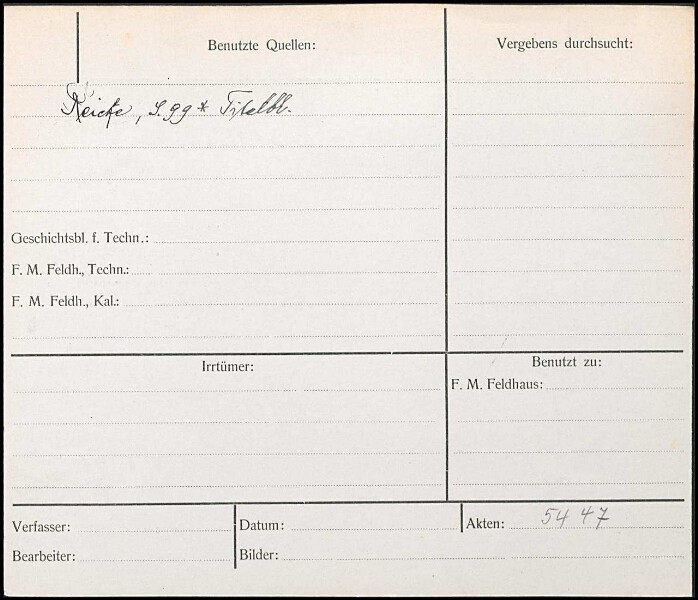 Benutzte Quellen:
Vergebens durchsucht:
Reicke, S. 99 * Titelbl.
Geschichtsbl. f. Techn.:
F. M. Feldh., Techn.:
F. M. Feldh., Kal.:
Irrtümer:
Benutzt zu:
F. M. Feldhaus:
Verfasser:
Datum:
Akten: 5447
Bearbeiter:
Bilder: